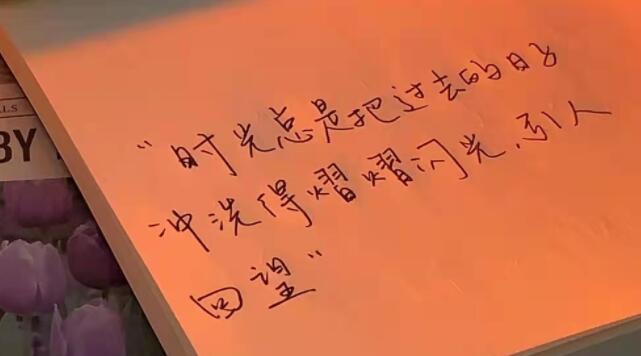 “时光总是把过去的日子
冲洗得熠熠闪光、引人
回望”
LLS
BY